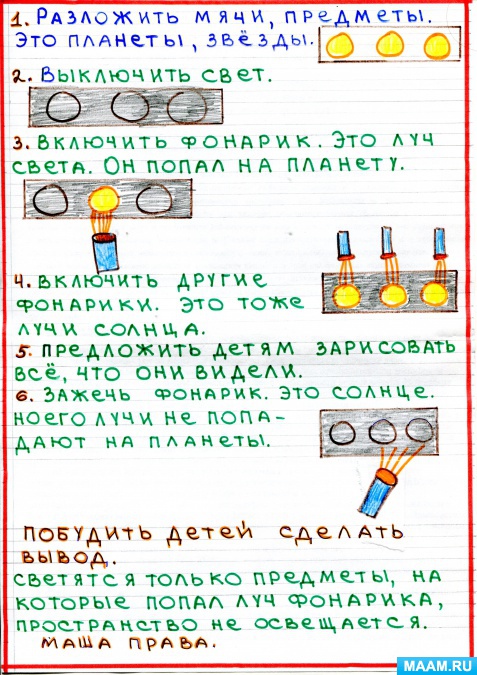 1. РАЗЛОЖИТЬ МЯЧИ, ПРЕДМЕТЫ.
ЭТО ПЛАНЕТЫ, ЗВЁЗДЫ.
2. ВЫКЛЮЧИТЬ СВЕТ.
3. ВКЛЮЧИТЬ ФОНАРИК. ЭТО ЛУЧ
СВЕТА. ОН ПОПАЛ НА ПЛАНЕТУ.
4. ВКЛЮЧИТЬ ДРУГИЕ
ФОНАРИКИ. ЭТО ТОЖЕ
ЛУЧИ СОЛНЦА.
5. ПРЕДЛОЖИТЬ ДЕТЯМ ЗАРИСОВАТЬ
ВСЁ, ЧТО ОНИ ВИДЕЛИ.
6. ЗАЖЕЧЬ ФОНАРИК. ЭТО СОЛНЦЕ.
НО ЕГО ЛУЧИ НЕ ПОПА-
ДАЮТ НА ПЛАНЕТЫ.
ПОБУДИТЬ ДЕТЕЙ СДЕЛАТЬ
ВЫВОД.
СВЕТЯТСЯ ТОЛЬКО ПРЕДМЕТЫ, НА
КОТОРЫЕ ПОПАЛ ЛУЧ ФОНАРИКА,
ПРОСТРАНСТВО НЕ ОСВЕЩАЕТСЯ.
МАША ПРАВА.
MAAM.RU